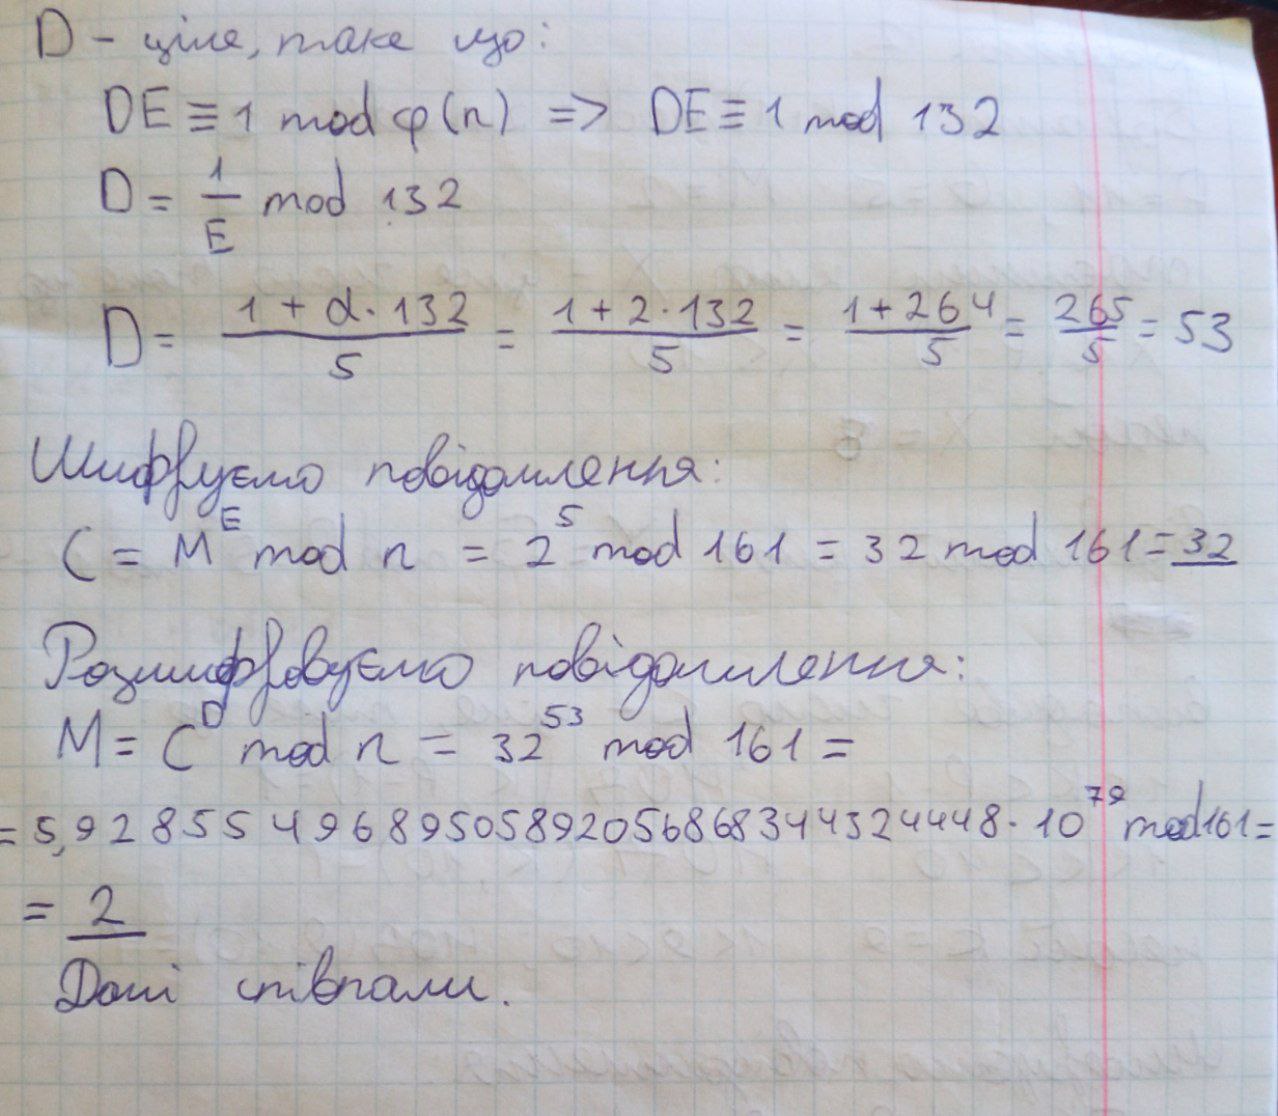 D - ціле, таке що:
DE ≡ 1 mod φ(n) => DE ≡ 1 mod 132
D = 1/E mod 132
D = (1 + d · 132)/5 = (1 + 2 · 132)/5 = (1 + 264)/5 = 265/5 = 53
Шифруємо повідомлення:
C = M^E mod n = 2^5 mod 161 = 32 mod 161 = 32
Розшифровуємо повідомлення:
M = C^D mod n = 32^53 mod 161 =
= 5,9285549689505892056868344324448 · 10^79 mod 161 =
= 2
Дані співпали.